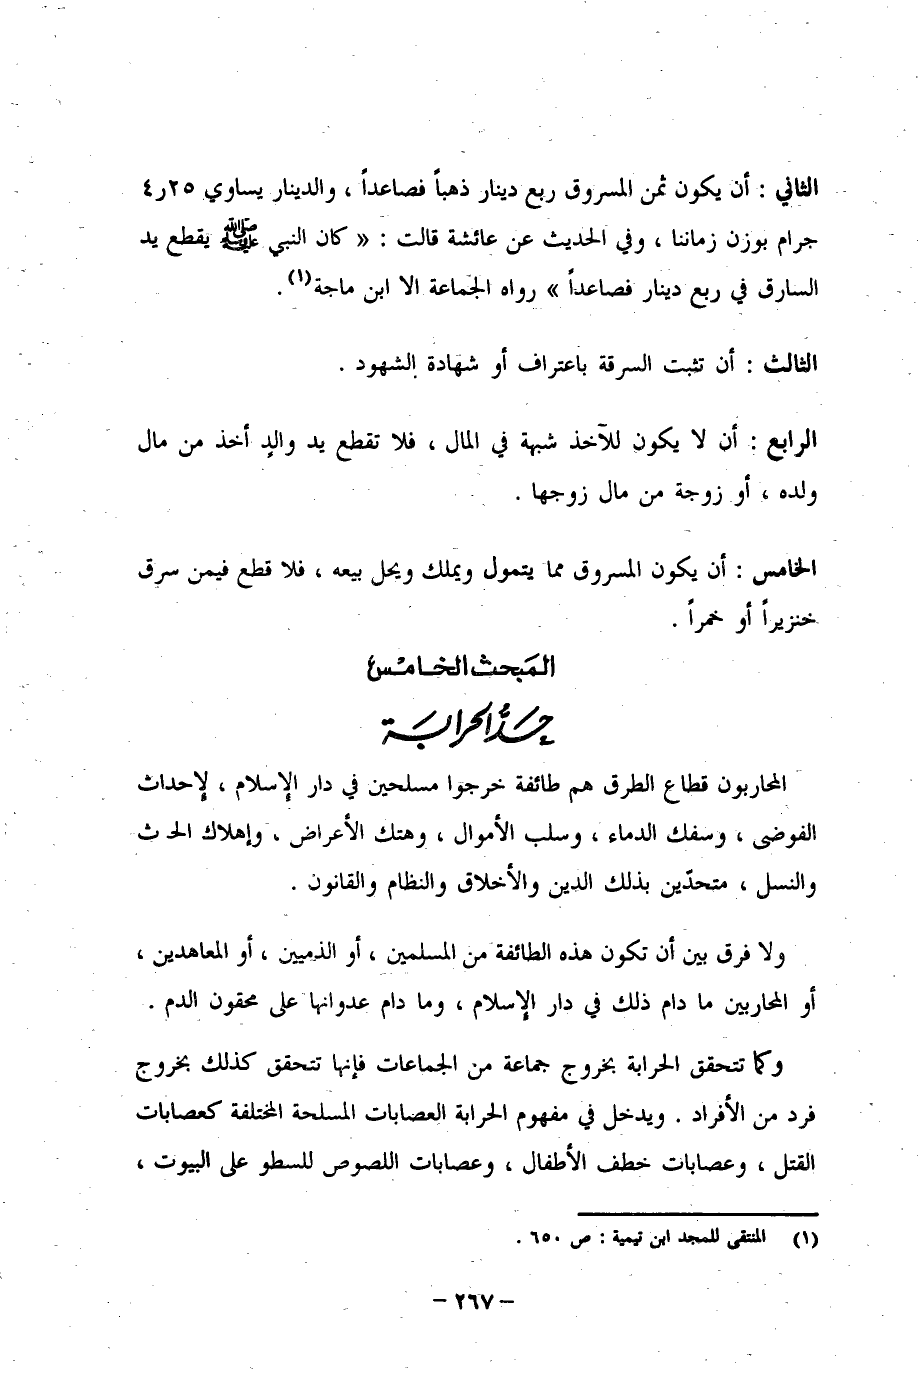 الثاني : أن يكون ثمن المسروق ربع دينار ذهباً فصاعداً ، والدينار يساوي ٢٥ر٤
جرام بوزن زماننا ، وفي الحديث عن عائشة قالت : « كان النبي ﷺ يقطع يد
السارق في ربع دينار فصاعداً » رواه الجماعة الا ابن ماجة(١) .
الثالث : أن تثبت السرقة باعتراف أو شهادة الشهود .
الرابع : أن لا يكون للآخذ شبهة في المال ، فلا تقطع يد والدٍ أخذ من مال
ولده ، أو زوجة من مال زوجها .
الخامس : أن يكون المسروق مما يتمول ويملك ويحل بيعه ، فلا قطع فيمن سرق
خنزيراً أو خمراً .
المبحث الخامس
حدُّ الحرابة
المحاربون قطاع الطرق هم طائفة خرجوا مسلحين في دار الإسلام ، لإحداث
الفوضى ، وسفك الدماء ، وسلب الأموال ، وهتك الأعراض ، وإهلاك الحـ ث
والنسل ، متحدّين بذلك الدين والأخلاق والنظام والقانون .
ولا فرق بين أن تكون هذه الطائفة من المسلمين ، أو الذميين ، أو المعاهدين ،
أو المحاربين ما دام ذلك في دار الإسلام ، وما دام عدوانها على محقون الدم .
وكما تتحقق الحرابة بخروج جماعة من الجماعات فإنها تتحقق كذلك بخروج
فرد من الأفراد . ويدخل في مفهوم الحرابة العصابات المسلحة المختلفة كعصابات
القتل ، وعصابات خطف الأطفال ، وعصابات اللصوص للسطو على البيوت ،
(١) المنتقى للمجد ابن تيمية : ص ٦٥٠ .
– ٢٦٧ –